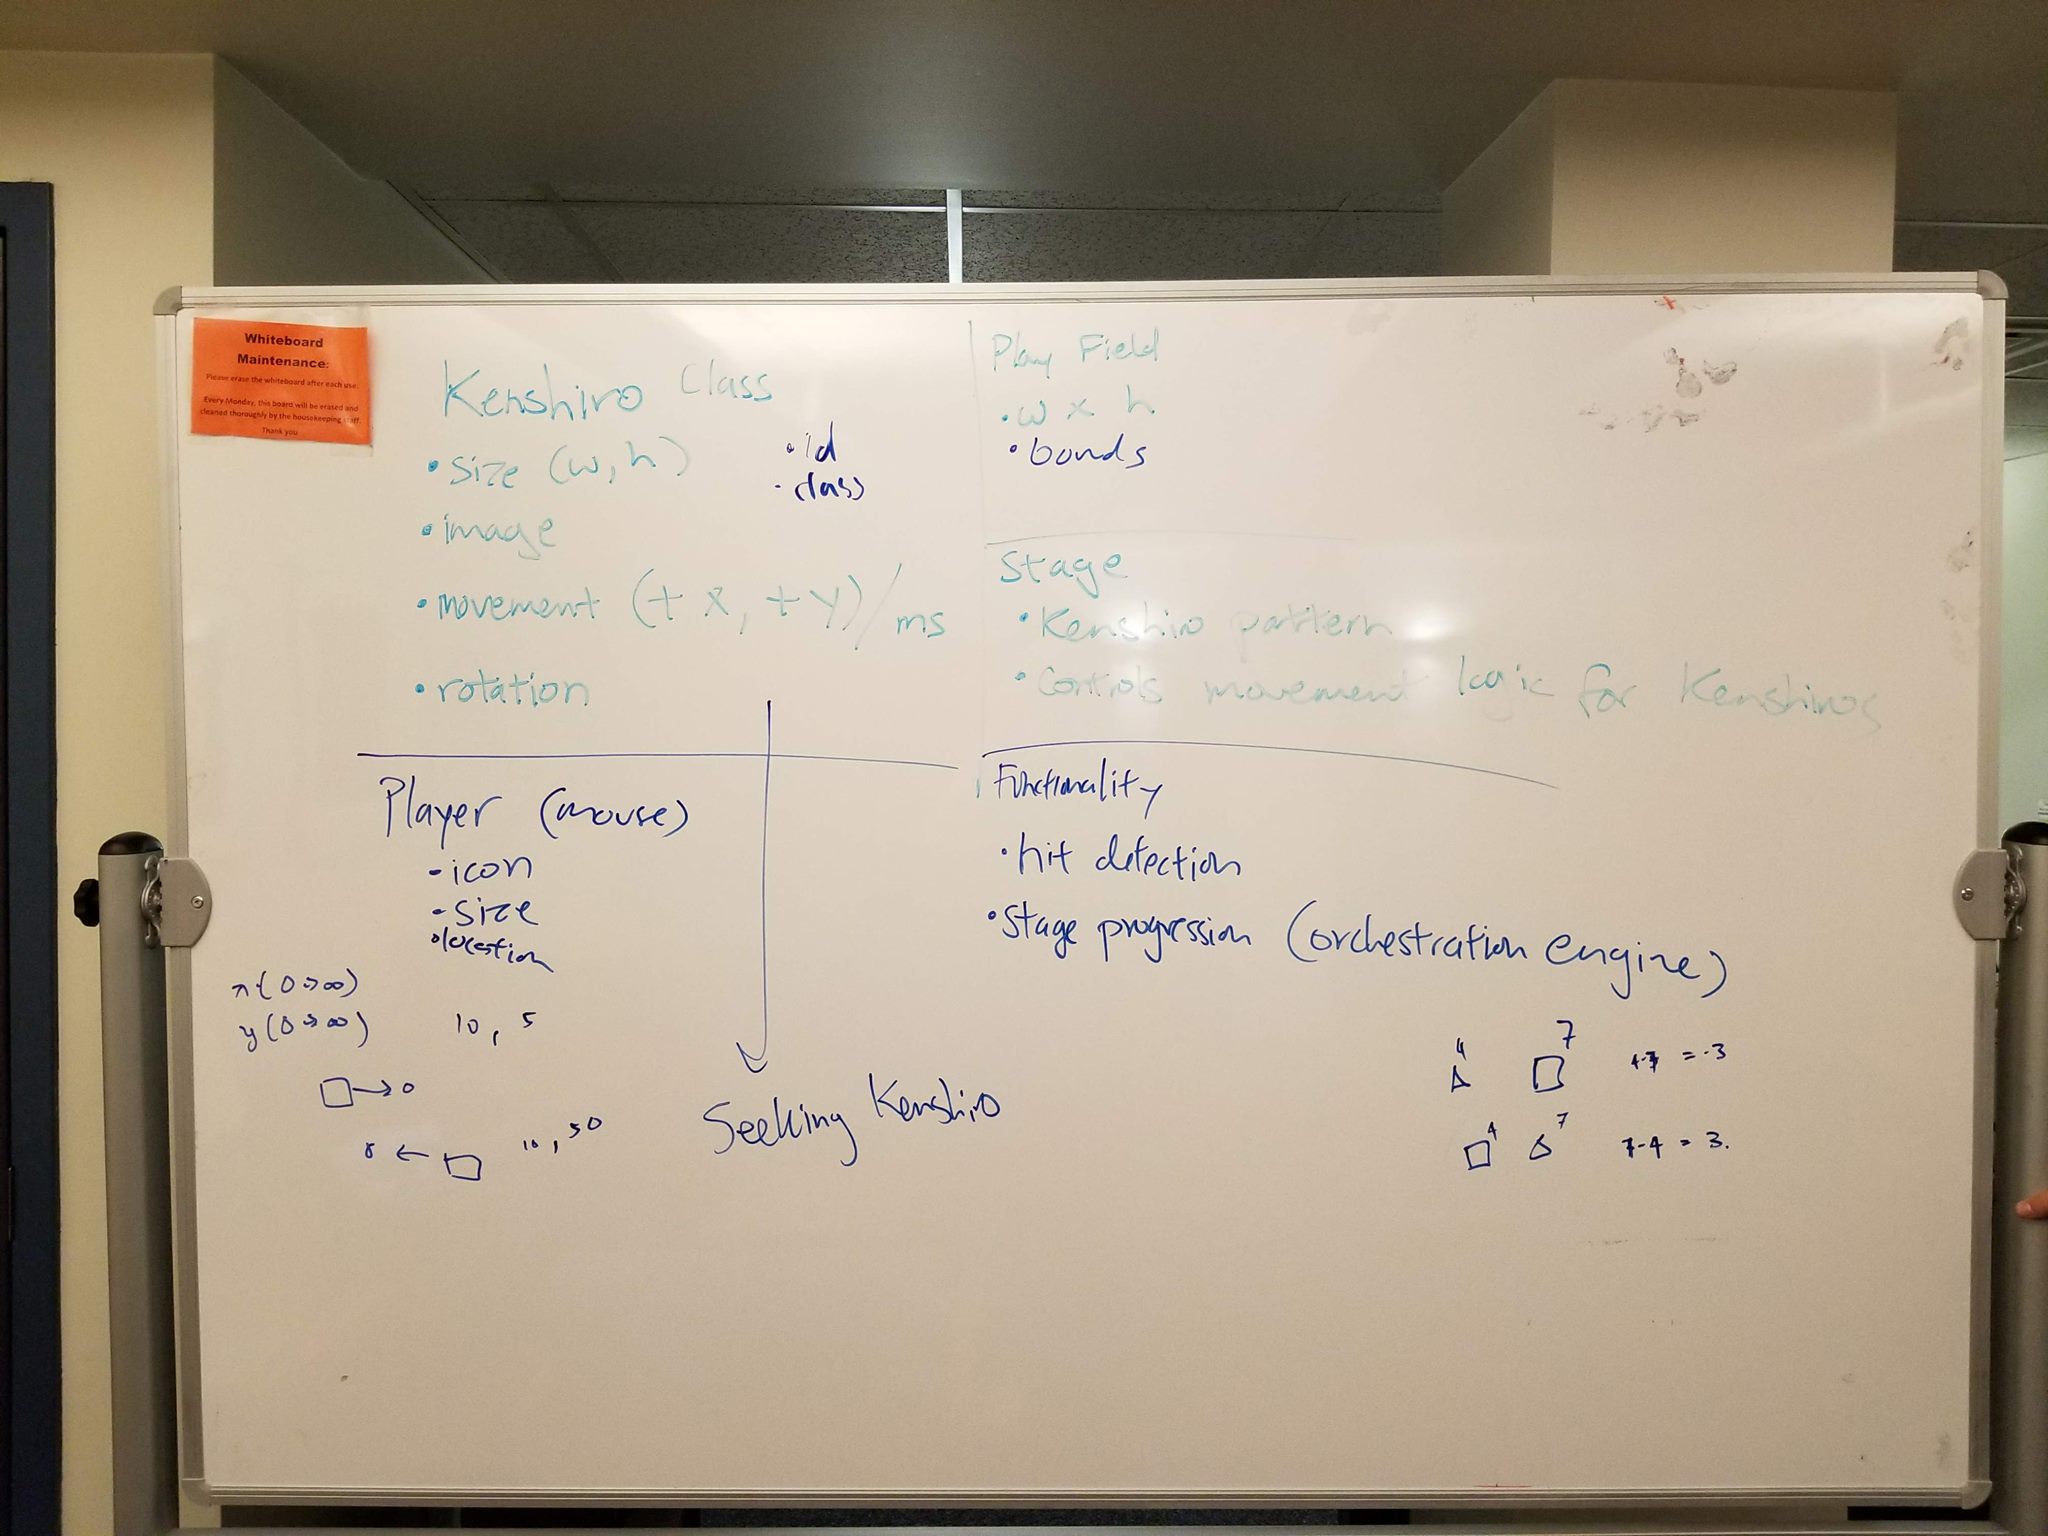 Whiteboard
Maintenance:
Please erase the whiteboard after each use.
Every Monday, this board will be erased and
cleaned thoroughly by the housekeeping staff.
Thank you
Kenshiro Class
• size (w, h)
• image
• movement (+ x, + y)/ms
• rotation
• id
• class
Play Field
• w x h
• bonds
Stage
• Kenshiro pattern
• Controls movement logic for Kenshiros
Player (mouse)
- icon
- size
• location
x (0 → ∞)
y (0 → ∞)
10, 5
10, 50
Seeking Kenshiro
Functionality
• hit detection
• Stage progression (orchestration engine)
4 7 4-7 = -3
4 7 7-4 = 3.